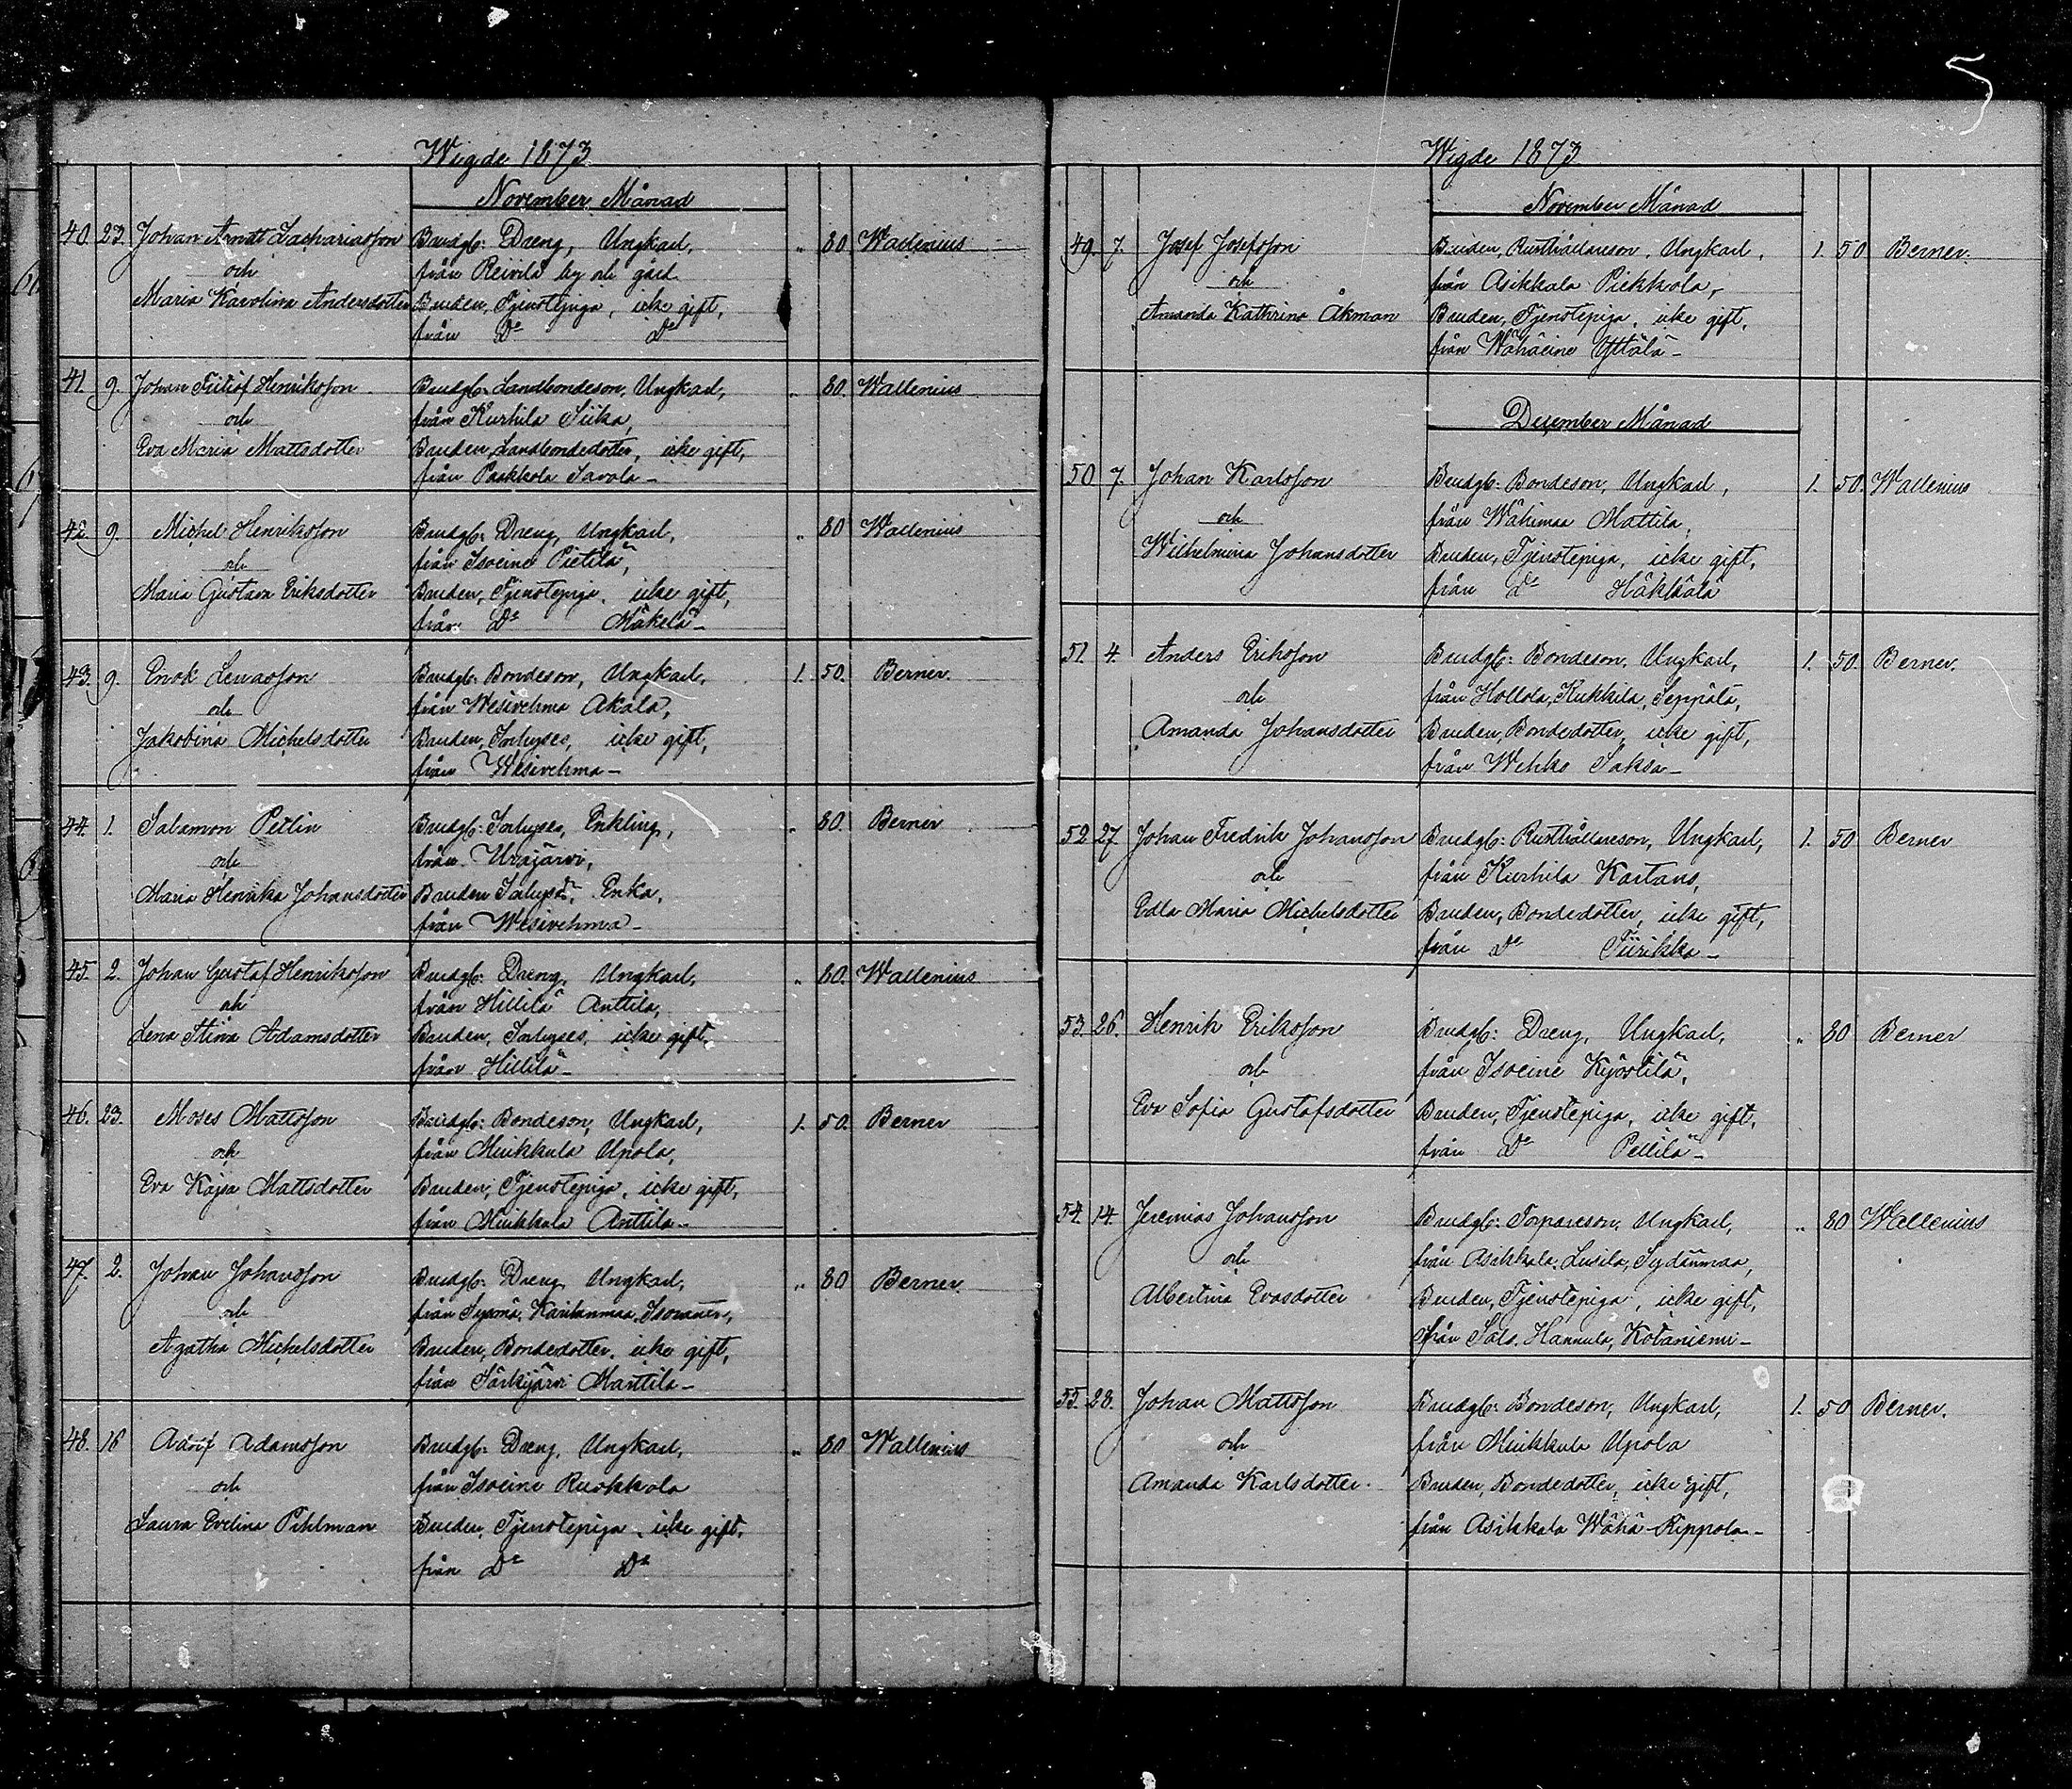 5
Wigde 1873
November Månad
40. 23. Johan Arndt Zachariasson Brudg: Dreng, Ungkarl, " 80 Wallenius
och från Reivilä by och gård
Maria Karolina Andersdotter Bruden, Tjenstepiga, icke gift,
från Do Do
41. 9. Johan Fritiof Henriksson Brudg: Landbondeson, Ungkarl, " 80. Wallenius
och från Kurhila Siika,
Eva Maria Mattsdotter Bruden, Landbondedotter, icke gift,
från Paakkola Savola -
42. 9. Michel Henriksson Brudg: Dreng, Ungkarl, " 80 Wallenius
och från Isoeine Pietilä,
Maria Gustava Eriksdotter Bruden, Tjenstepiga, icke gift,
från Do Mäkelä -
43. 9. Enok Lenasson Brudg: Bondeson, Ungkarl, 1. 50. Berner.
och från Wesivehma Akala,
Jakobina Michelsdotter Bruden, Inhyses, icke gift,
från Wesivehma -
44. 1. Salomon Pellin Brudg: Inhyses, Enkling, " 80. Berner
och från Urajärvi,
Maria Henrika Johansdotter Bruden Inhyses, Enka,
från Wesivehma -
45. 2. Johan Gustaf Henriksson Brudg: Dreng, Ungkarl, " 80. Wallenius
och från Hillilä Anttila,
Lena Stina Adamsdotter Bruden, Inhyses, icke gift,
från Hillilä -
46. 23. Moses Mattsson Brudg: Bondeson, Ungkarl, 1. 50. Berner
och från Muikkula Upola,
Eva Kajsa Mattsdotter Bruden, Tjenstepiga, icke gift,
från Muikkula Anttila -
47. 2. Johan Johansson Brudg: Dreng, Ungkarl, " 80 Berner.
och från Sysmä,
Agatha Michelsdotter Bruden, Bondedotter, icke gift,
från Särkijärvi Marttila -
48. 16 Adolf Adamsson Brudg: Dreng, Ungkarl, " 80 Wallenius
och från Isoeine Ruokkola
Laura Evelina Pihlman Bruden, Tjenstepiga, icke gift,
från Do Do
Wigde 1873
November Månad
49. 7. Josef Josefsson Bruden, Rusthållareson, Ungkarl, 1. 50 Berner.
och från Asikkala Piekkola,
Amanda Kathrina Åkman Bruden, Tjenstepiga, icke gift,
från Wähäeine Yttälä -
December Månad
50 7. Johan Karlsson Brudg: Bondeson, Ungkarl, 1. 50. Wallenius
och från Wähimaa Mattila,
Wilhelmina Johansdotter Bruden, Tjenstepiga, icke gift,
från Do Häkkälä
51. 4. Anders Eriksson Brudg: Bondeson, Ungkarl, 1. 50. Berner.
och från Hollola, Kukkila, Seppälä,
Amanda Johansdotter Bruden, Bondedotter, icke gift,
från Wehks Saksa -
52 27. Johan Fredrik Johansson Brudg: Rusthållareson, Ungkarl, 1. 50 Berner
och från Kurhila Kartans,
Edla Maria Michelsdotter Bruden, Bondedotter, icke gift,
från Do Tiirikka -
53. 26. Henrik Eriksson Brudg: Dreng, Ungkarl, " 80 Berner
och från Isoeine Kyöstilä,
Eva Sofia Gustafsdotter Bruden, Tjenstepiga, icke gift,
från Do Pellilä -
54. 14. Jeremias Johansson Brudg: Torpareson, Ungkarl, " 80 Wallenius
och från Asikkala, Lusila, Sydänmaa,
Albertina Evasdotter Bruden, Tjenstepiga, icke gift,
från Hannula, Kotaniemi -
55. 28. Johan Mattsson Brudg: Bondeson, Ungkarl, 1. 50 Berner.
och från Muikkula Upola
Amanda Karlsdotter. Bruden, Bondedotter, icke gift,
från Asikkala Wähä-Kippola -